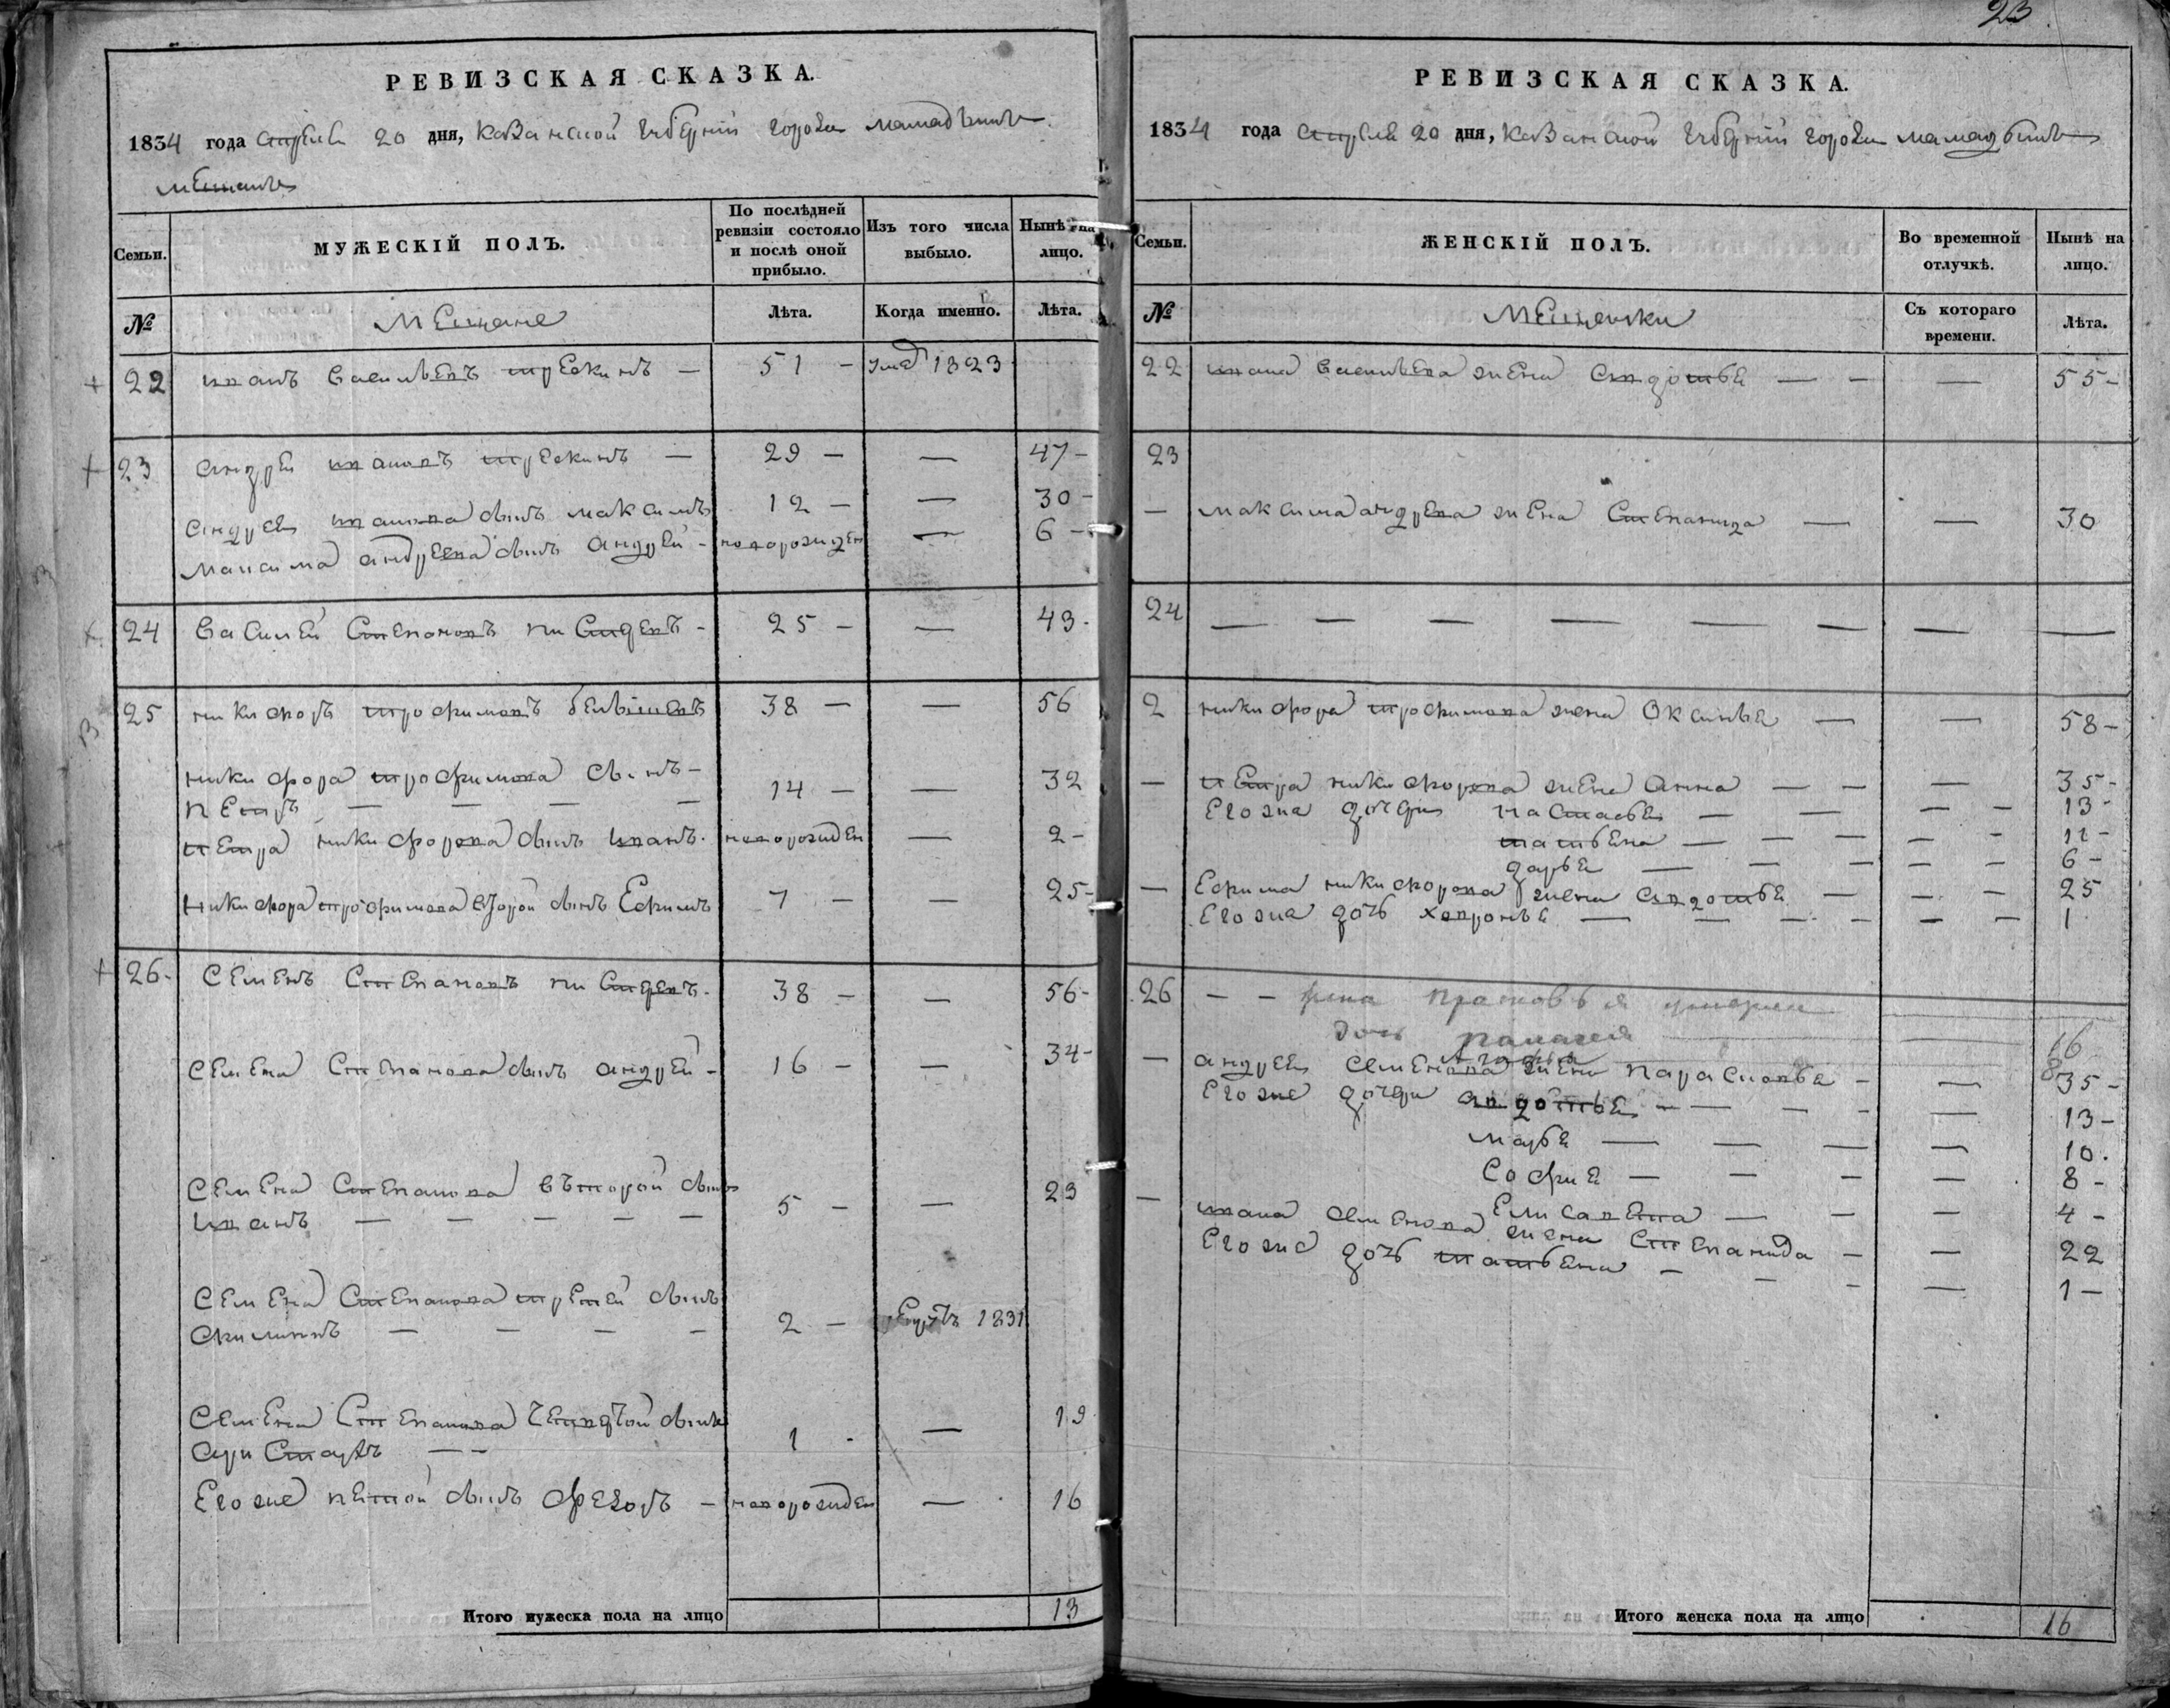 23
РЕВИЗСКАЯ СКАЗКА.
1834 года апреля 20 дня, Казанской губернии города мамадыша
мещанъ
Семьи. МУЖЕСКІЙ ПОЛЪ. По послѣдней ревизіи состояло и послѣ оной прибыло. Изъ того числа выбыло. Нынѣ на лицо.
№ Мещане Лѣта. Когда именно. Лѣта.
22 иванъ васильевъ трескинъ — 51 — 1823
23 андрей ивановъ трескинъ — 29 — — 47 —
андрея иванова сынъ максимъ 12 — — 30 —
максима андреева сынъ андрей — новорожден — 6 —
24 василей степановъ — 25 — — 43 -
25 никифоръ трофимовъ 38 — — 56
никифора трофимова сынъ —
петръ — — — — 14 — — 32
петра никифорова сынъ иванъ - новорожден — 2 -
никифора трофимова второй сынъ Ефимъ 7 — — 25 -
26 - семенъ степановъ 38 — — 56 -
семена степанова сынъ андрей - 16 — — 34 -
семена степанова вторый сынъ
иванъ — — — — — 5 — — 23
семена степанова третей сынъ
филиппъ — — — — 2 — рекрутъ 1831
семена степанова четвертой сынъ
аристархъ — — 1 - — 19
Егоже пятой сынъ федоръ — новорожден — 16
Итого мужеска пола на лицо 13
РЕВИЗСКАЯ СКАЗКА.
1834 года апреля 20 дня, Казанской губернии города мамадыша
Семьи. ЖЕНСКІЙ ПОЛЪ. Во временной отлучкѣ. Нынѣ на лицо.
№ Мещански Съ котораго времени. Лѣта.
22 ивана васильева жена авдотья — — — 55 -
23
— максима андреева жена степанида — — 30
24 — — — — — — — —
2 никифора трофимова жена Оксинья — — 58 -
— петра никифорова жена анна — — — 35 -
Егоже дочери настасья — — — — 13 -
татьяна — — — — — 11 -
дарья — — — — — 6 -
— Ефима никифорова жена авдотья — — — 25
Егоже дочь хавронья — — — — — — 1
26 — — жена прасковья умерла
дочь палагея 16
8
— андрея семенова жена парасковья — — 35 -
Егоже дочери авдотья — — — — — 13 -
марья — — — — 10.
София — — — — 8 -
Елисавета — — — 4 -
— ивана семенова жена степанида — — 22
Егоже дочь татьяна — — — — 1 —
Итого женска пола на лицо 16